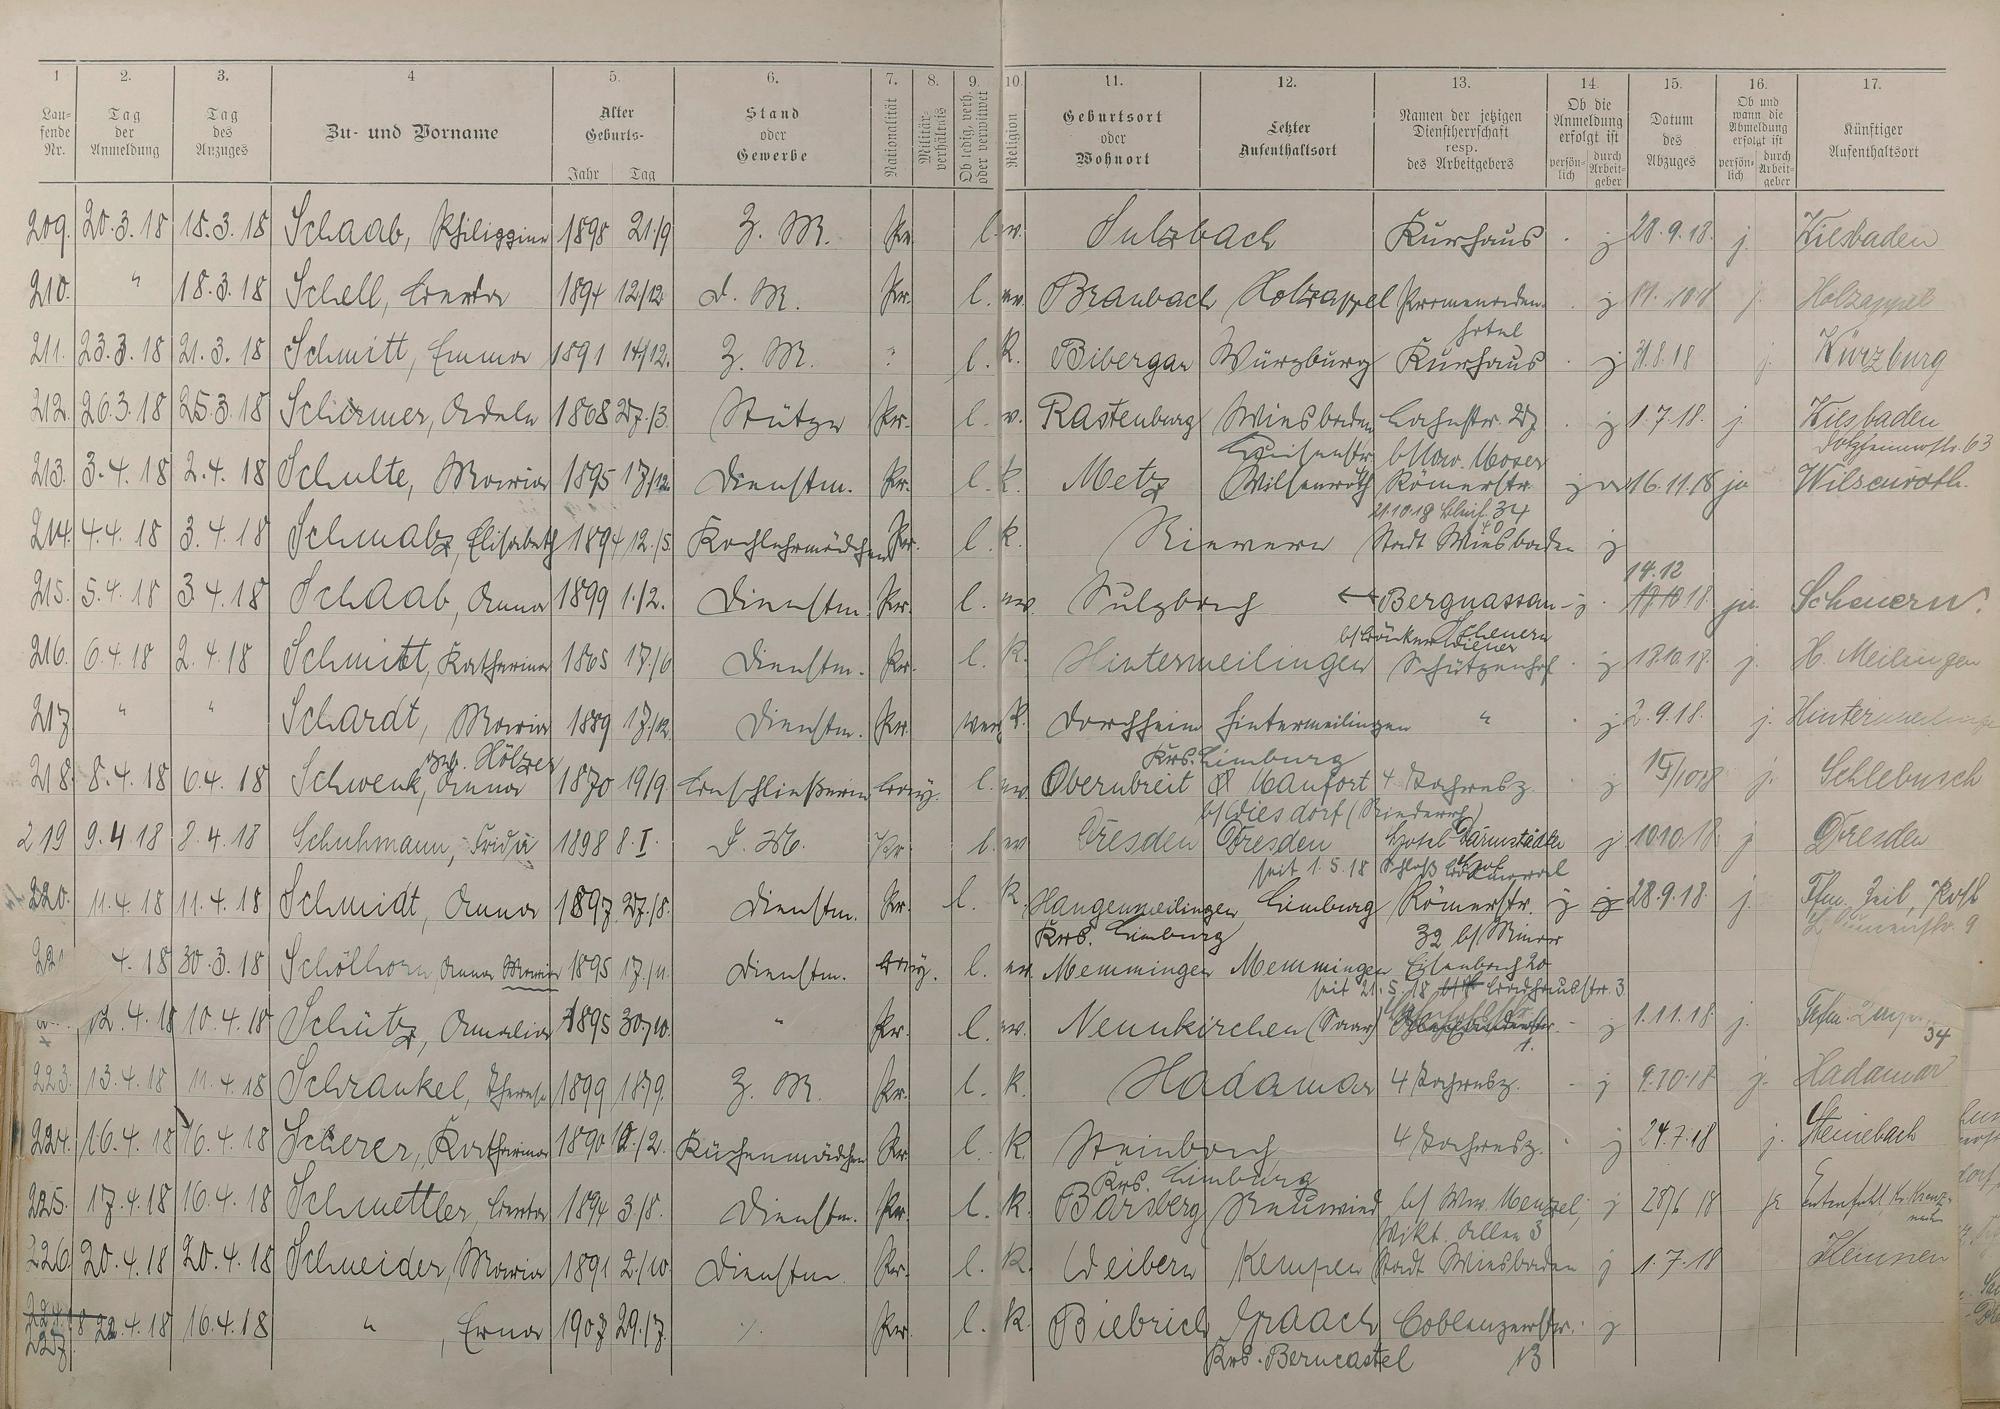 1 2. 3. 4 5. 6. 7. 8. 9. 10. 11. 12. 13. 14. 15. 16. 17.
Laufende Nr. Tag der Anmeldung Tag des Anzuges Zu- und Vorname Alter Geburts- Jahr Tag Stand oder Gewerbe Nationalität Militärverhältnis Ob ledig, verh. oder verwitwet Religion Geburtsort oder Wohnort Letzter Aufenthaltsort Namen der jetzigen Dienstherrschaft resp. des Arbeitgebers Ob die Anmeldung erfolgt ist persönlich durch Arbeitgeber Datum des Abzuges Ob und wann die Abmeldung erfolgt ist persönlich durch Arbeitgeber Künftiger Aufenthaltsort
209. 20.3.18 18.3.18 Schaab, Philippine 1898 21/9 Z. M. Pr. l. ev. Sulzbach Kurhaus j 28.9.18. j. Wiesbaden
210. " 18.3.18 Schell, Berta 1894 12/12 d. M. Pr. l. ev. Braubach Holzappel Promenaden- j j. Holzappel
hotel
211. 23.3.18 21.3.18 Schmitt, Emma 1891 14/12. Z. M. l. K. Bibergau Würzburg Kurhaus j 31.8.18 j. Würzburg
212. 26.3.18 25.3.18 Schirmer, Adele 1868 27./3. Stütze Pr. l. ev. Rastenburg Wiesbaden Lahnstr. 27 j 1.7.18. j. Wiesbaden
Luisenstr. b/ Ww. Moser Dotzheimerstr. 63
213. 3.4.18 2.4.18 Schulte, Maria 1895 17/12. Dienstm. Pr. l. K. Metz Wilsenroth Römerstr. 16.11.18 ja Wilsenroth.
34
214. 4.4.18 3.4.18 Schwab, Elisabeth 1894 12./5. Kochlehrmädchen Pr. l. K. Nievern Stadt Wiesbaden j
14.12
215. 5.4.18 3.4.18 Schaab, Anna 1899 1./2. Dienstm. Pr. l. ev. Sulzbach Bergnassau- j 18 ja. Scheuern.
Scheuern
216. 6.4.18 2.4.18 Schmitt, Katharina 1865 17./6 Dienstm. Pr. l. K. Hintermeilingen Schützenhof j 18.10.18. j. H. Meilingen
217 " " Schardt, Maria 1889 17/12. Dienstm. Pr. verh. K. Dorchheim Hintermeilingen " j 2.9.18. j. Hintermeilingen
geb. Hölzer Krs. Limburg
218. 8.4.18 6.4.18 Schwenk, Anna 1870 19/9. Beschließerin Bay. l. ev. Obernbreit Manfort 4 Jahresz. j 15/10 18 j. Schlebusch
b/ Wiesdorf
219 9.4.18 8.4.18 Schuhmann, Frida 1898 8.I. Z. M. Pr l. ev Dresden Dresden Hotel Darmstädter j 10.10.18. j Dresden
seit 1.5.18 Schloß Hof
220. 11.4.18 11.4.18 Schmidt, Anna 1897 27./8. Dienstm. Pr. l. K. Hangenmeilingen Limburg Römerstr. j j 28.9.18. j. Ffm.
Krs. Limburg 32
221 4.18 30.3.18 Schölhorn, Anna Maria 1895 17./11. Dienstm. Bay. l. ev. Memmingen Memmingen 20
seit 21.5.18 Badhausstr. 3
12.4.18 10.4.18 Schütz, Amalia 1895 30./10. " Pr. l. ev. Neunkirchen (Saar) j 1.11.18. j.
1. 34
223. 13.4.18 11.4.18 Schrankel, Therese 1899 18/9. Z. M. Pr. l. K. Hadamar 4 Jahresz. j 9.10.18 j. Hadamar
224. 16.4.18 16.4.18 Scherer, Katharina 1890 /2. Küchenmädchen Pr. l. K. Steinbach 4 Jahresz. j 24.7.18 j. Steinebach
Krs. Limburg
225. 17.4.18 16.4.18 Schmettler, Berta 1894 3/8. Dienstm. Pr. l. K. Barsberg Neuwied b/ Ww. Menzel, j 28/6 18
Vikt. Allee 3
226. 20.4.18 20.4.18 Schneider, Maria 1891 2./10 Dienstm. Pr. l. K. Weibern Kempen Stadt Wiesbaden j 1.7.18
227. 22.4.18 16.4.18 " , Erna 1907 29./7. ./. Pr. l. K. Biebrich Graach Coblenzerstr. j
Krs. Berncastel 13